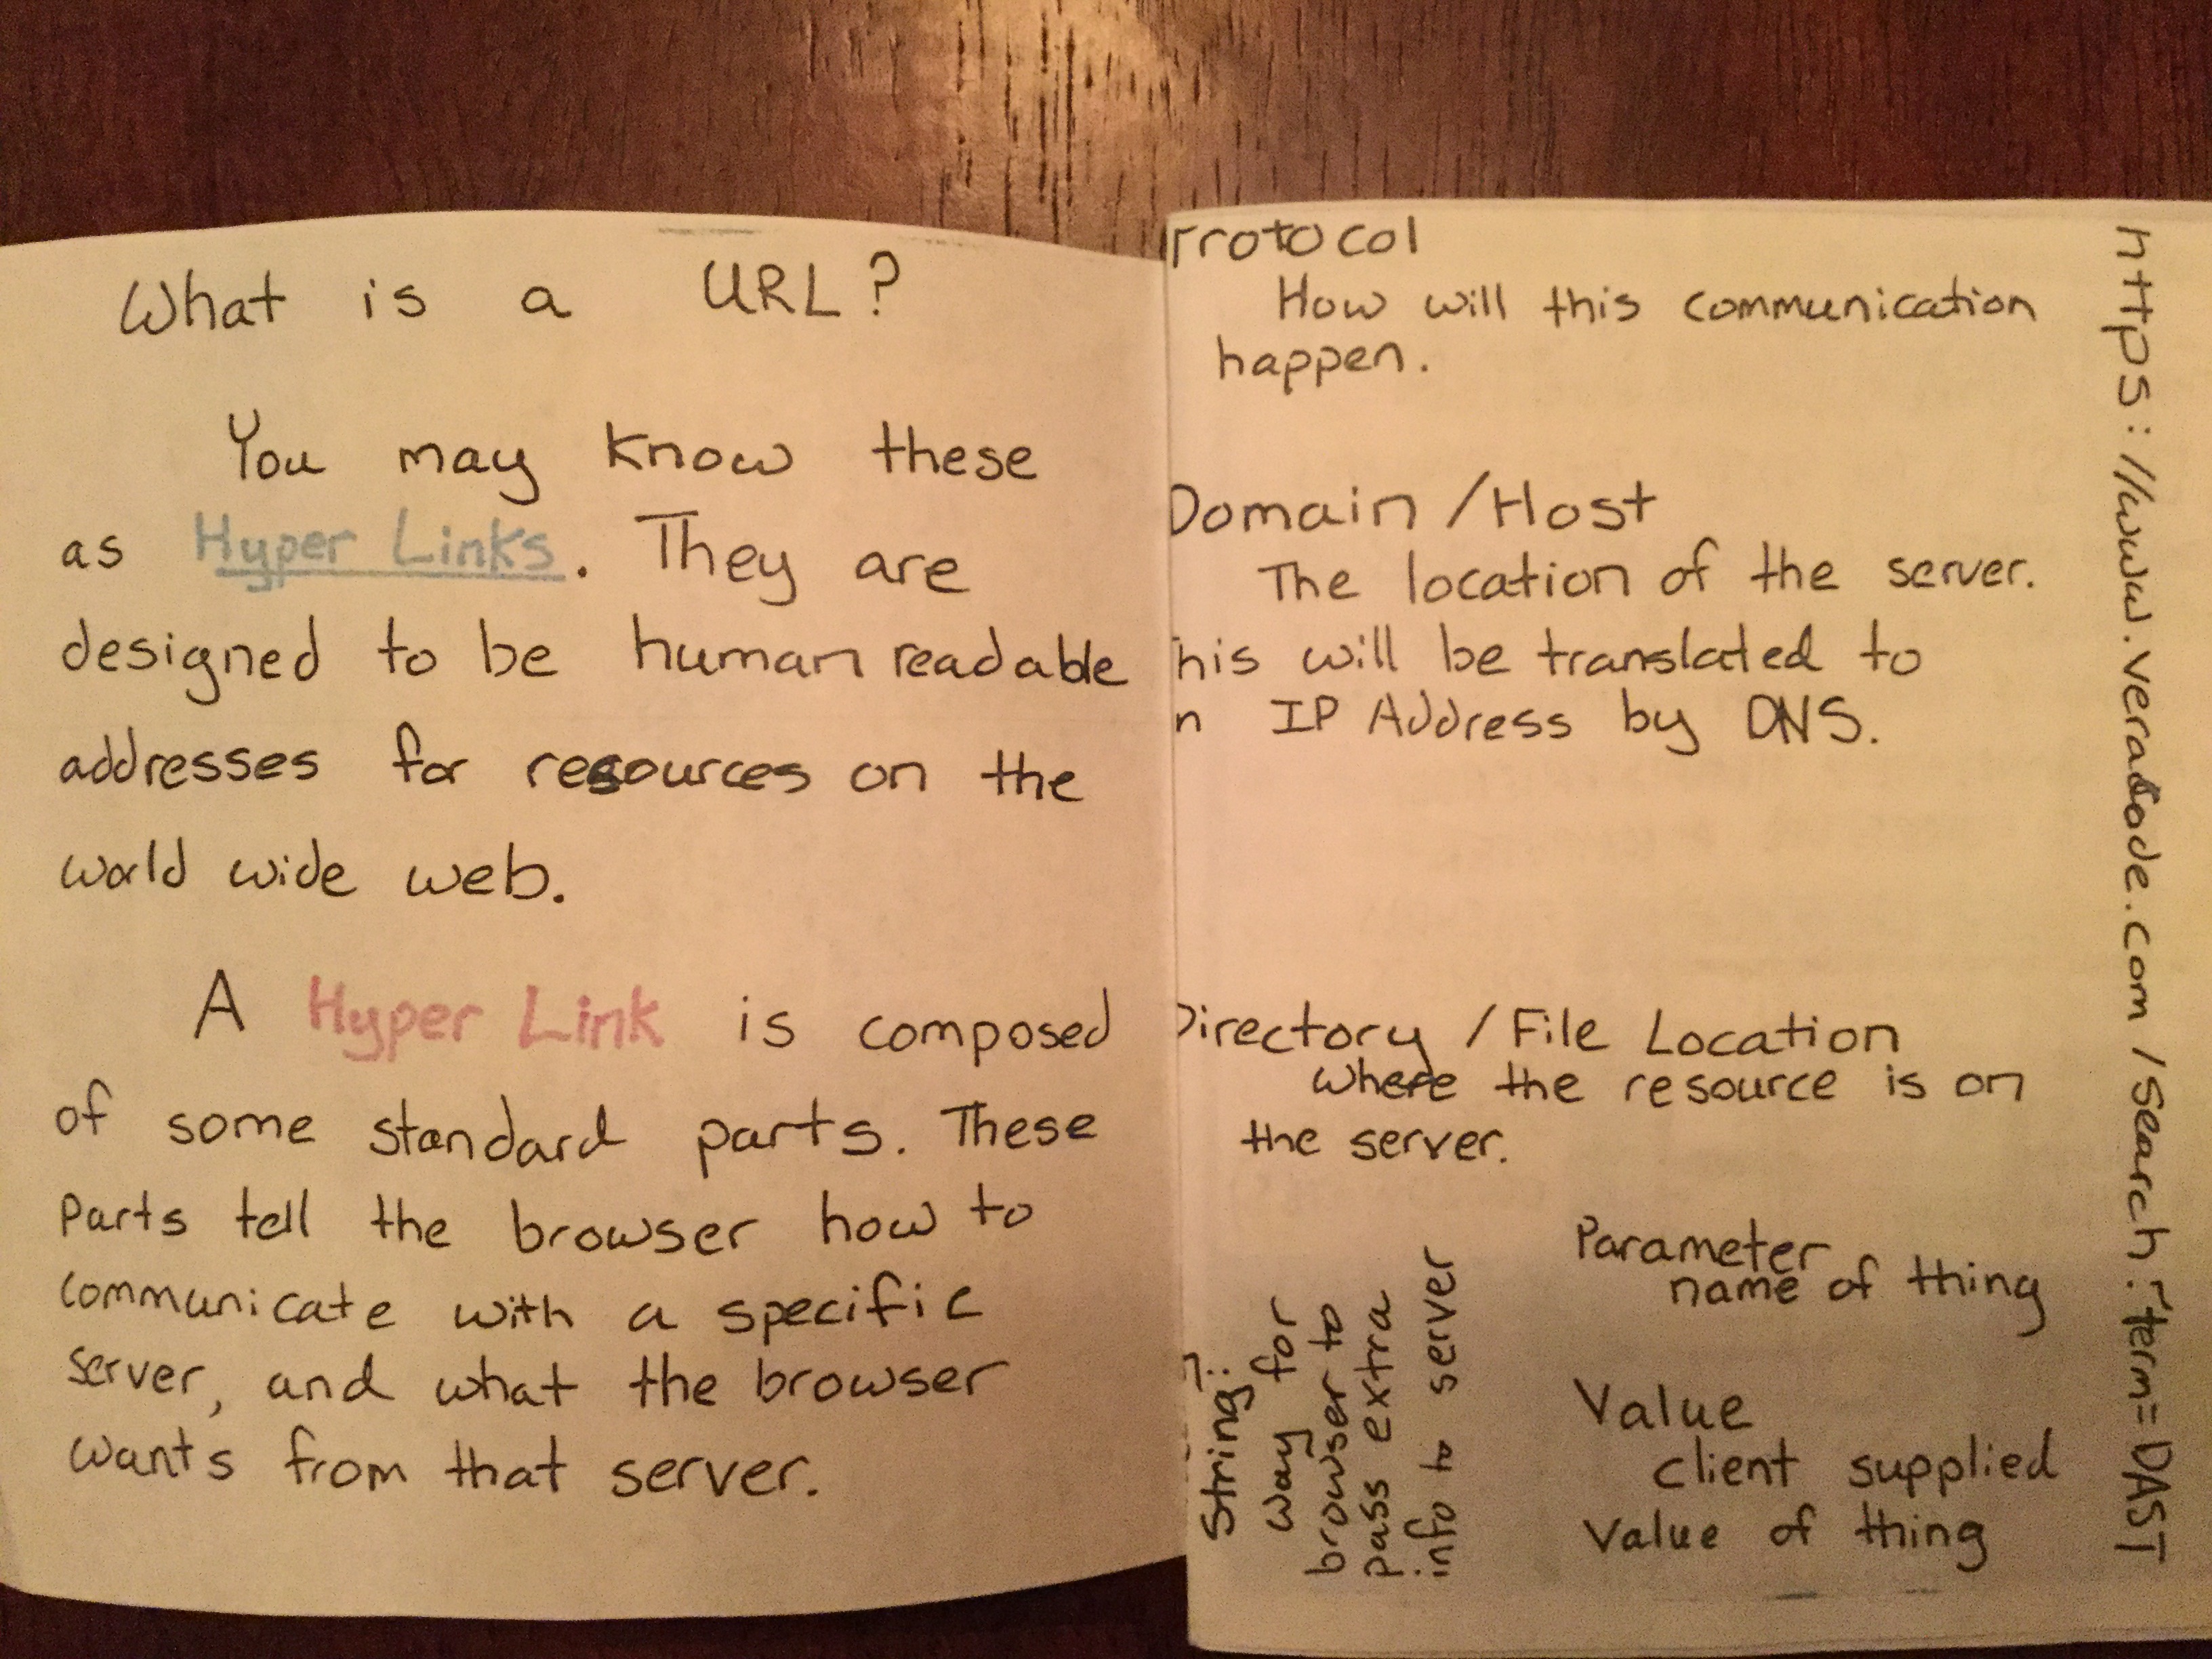 What is a URL?
You may know these
as Hyper Links. They are
designed to be human readable
addresses for resources on the
world wide web.
A Hyper Link is composed
of some standard parts. These
Parts tell the browser how to
communicate with a specific
server, and what the browser
wants from that server.
Protocol
How will this communication
happen.
Domain / Host
The location of the server.
This will be translated to
n IP Address by DNS.
Directory / File Location
where the resource is on
the server.
String:
way for
browser to
pass extra
info to server
Parameter
name of thing
Value
client supplied
value of thing
https://www.veracode.com/search?term=DAST